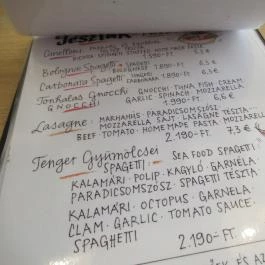 TÉSZTÁK
Canelloni
RICOTTA SPINACH HOME MADE PASTA
Bolognai Spagetti SPAGETTI BOLOGNESE 1.890-FT 6.5 €
Carbonara Spagetti SPAGETTI CARBONARA 1.890-FT 6.5 €
Tonhalas Gnocchi GNOCCHI TUNA FISH CREAM
GNOCCHI GARLIC SPINACH MOZZARELLA
1.990-FT 6.6 €
Lasagne MARHAHÚS PARADICSOMSZÓSZ
MOZZARELLA SAJT LASAGNE TÉSZTA
BEEF TOMATO HOME MADE PASTA MOZZARELLA
2.190-FT 7.3 €
Tenger Gyümölcsei
SPAGETTI SEA FOOD SPAGETTI
KALAMÁRI POLIP KAGYLÓ GARNÉLA
PARADICSOMSZÓSZ SPAGETTI TÉSZTA
KALAMÁRI OCTOPUS GARNELA
CLAM GARLIC TOMATO SAUCE
SPAGHETTI
2.190-FT